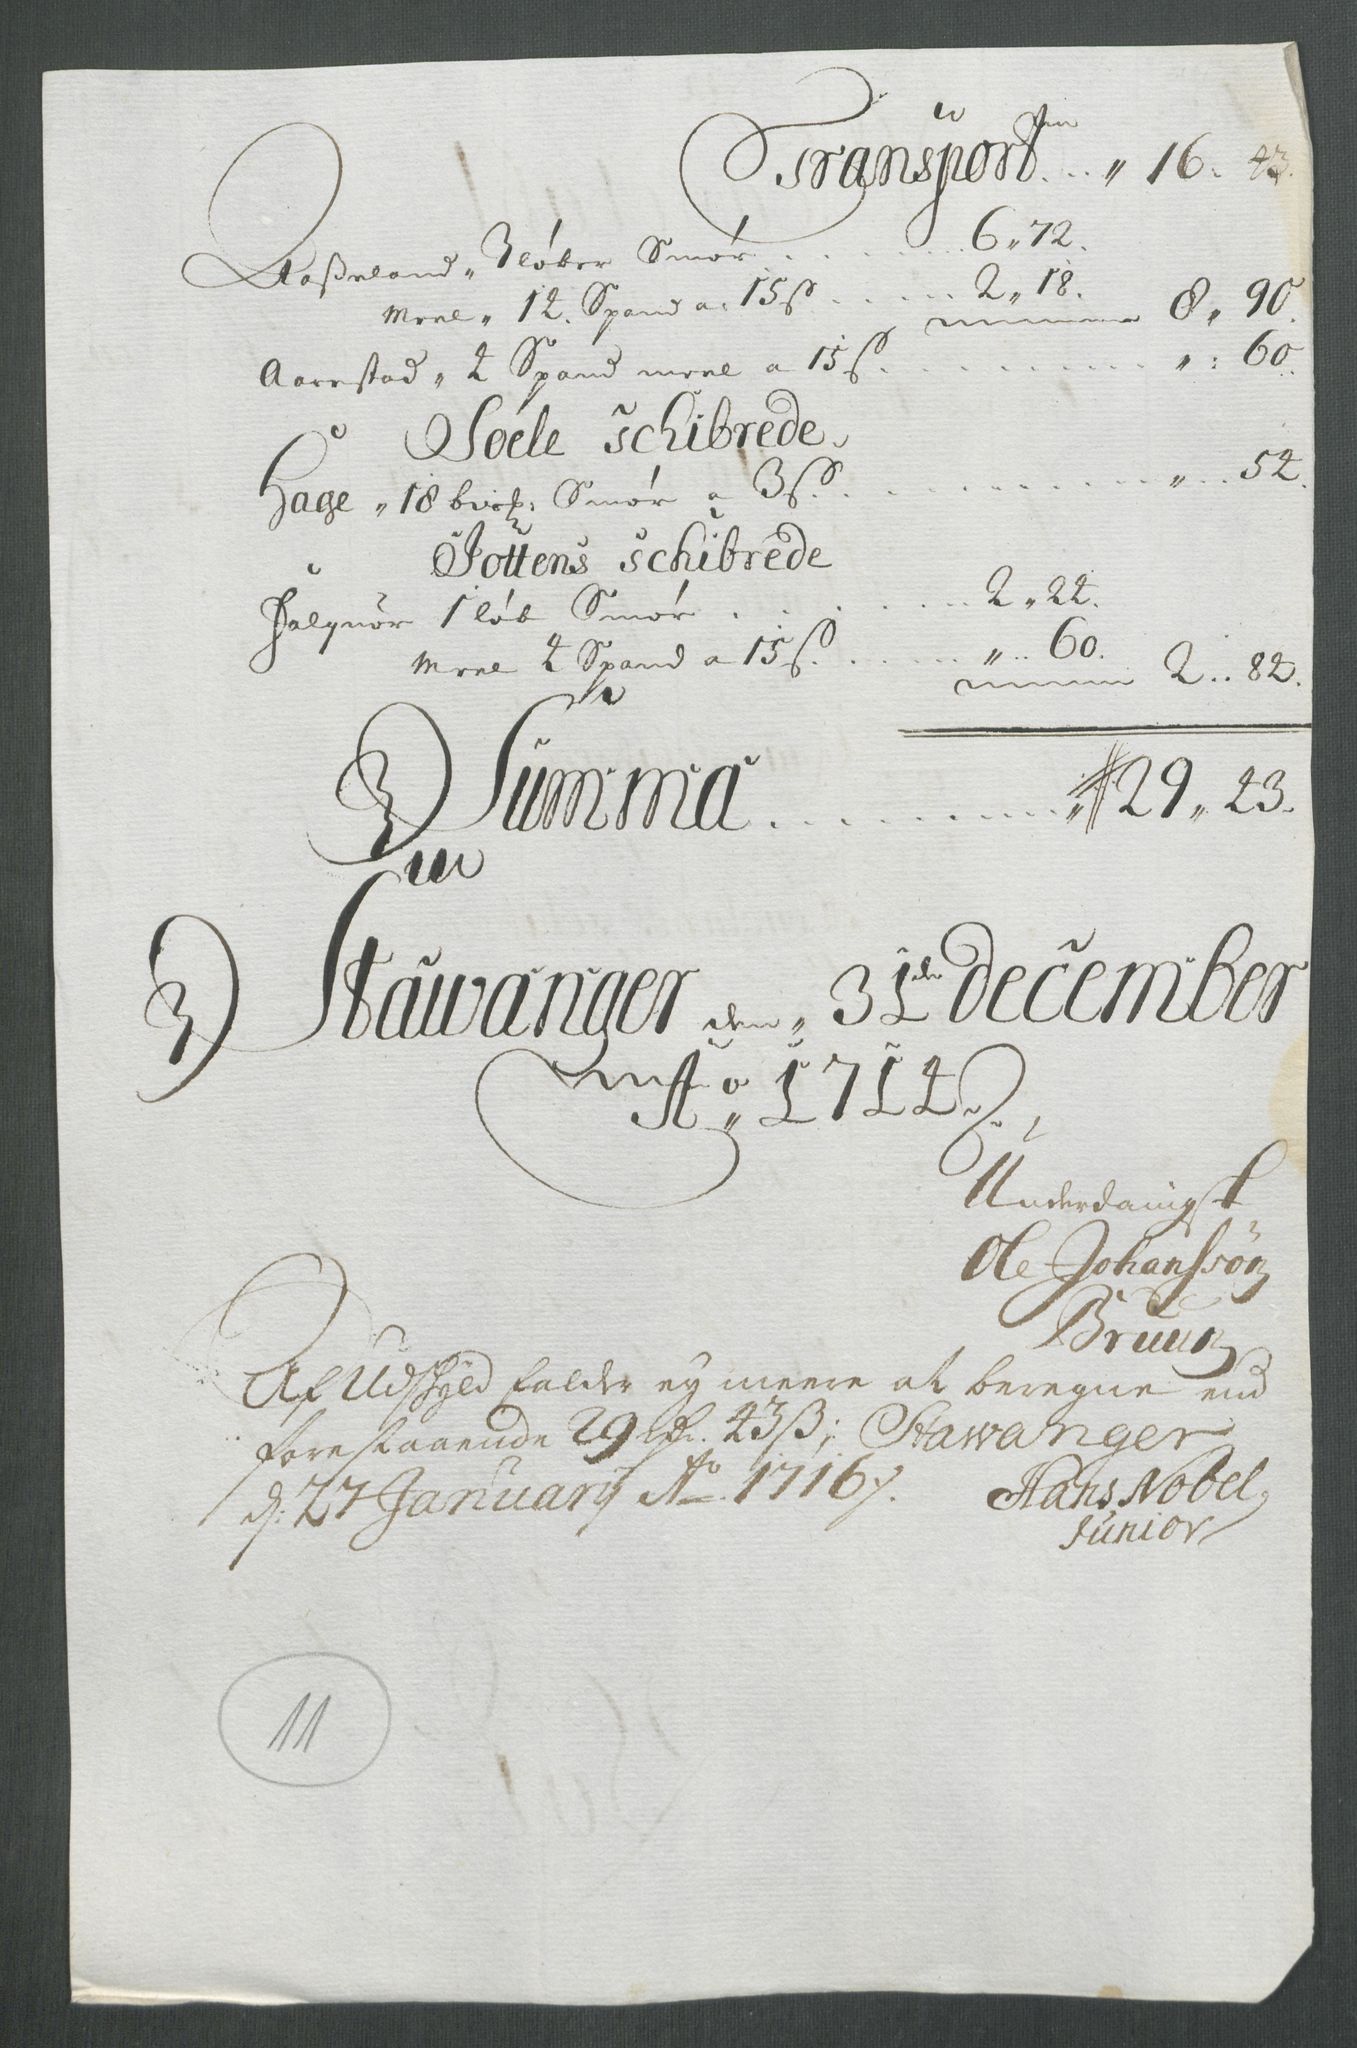 Transport.. „ 16. 43.
Aaßeland „ 3 løber Smør . . . . . . 6 „ 72.
Meel „ 14. Spand a: 15 ß . . . . . 2 „ 18. 8 „ 90.
Aarestad „ 4 Spand meel a 15 ß. . . . . . . . . „ : 60.
Soele Schibrede.
Hage „ 18 bmrk: Smør a 3 ß. . . . . . . . . . „ .. 54.
Jottens Schibrede
1 løb Smør . . . . . . . 2 „ 24.
Meel 4 Spand a 15 ß. . . . . . „ .. 60. 2 .. 84.
Summa . . . . . . . . . . 29 „ 43.
Stawanger den „ 31de december
Ao „ 1714
Underdanigst
Ole Johanssøn
Bruun
Af Udschyld falder ey meere at beregne end
forestaaende 29 rd. 43 ß; Stawanger
d: 27 January Ao. 1716.
Hans Nobel
Junior
11